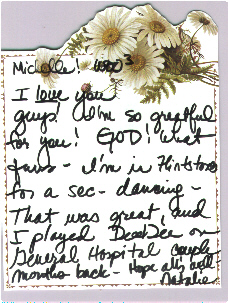 Michelle!
I love you
guys! I'm so greatful
for you! GOD! What
fans - I'm in Flintstones
for a sec - dancing -
That was great, and
I played DeeDee on
General Hospital couple
months back - Hope all's well
Natalie